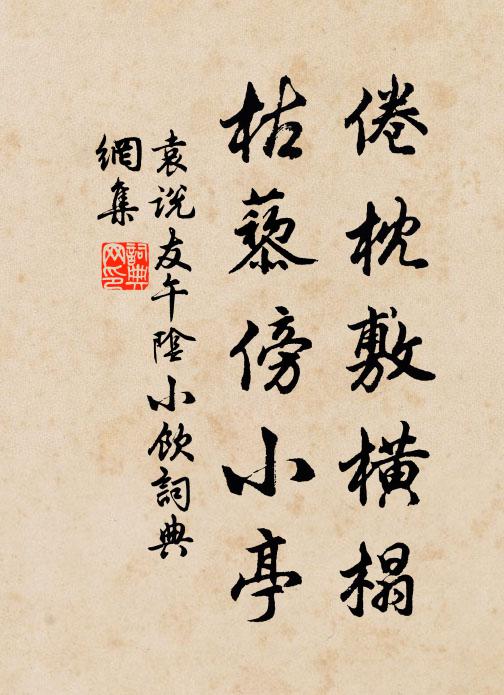 倦枕敷橫榻
枯藜傍小亭
袁說友午陰小飲詞典
網集
詞典網印